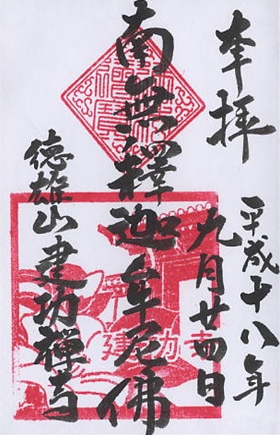 奉拝
平成十八年
九月廿四日
南無釋迦牟尼佛
徳雄山建功禅寺
建功寺